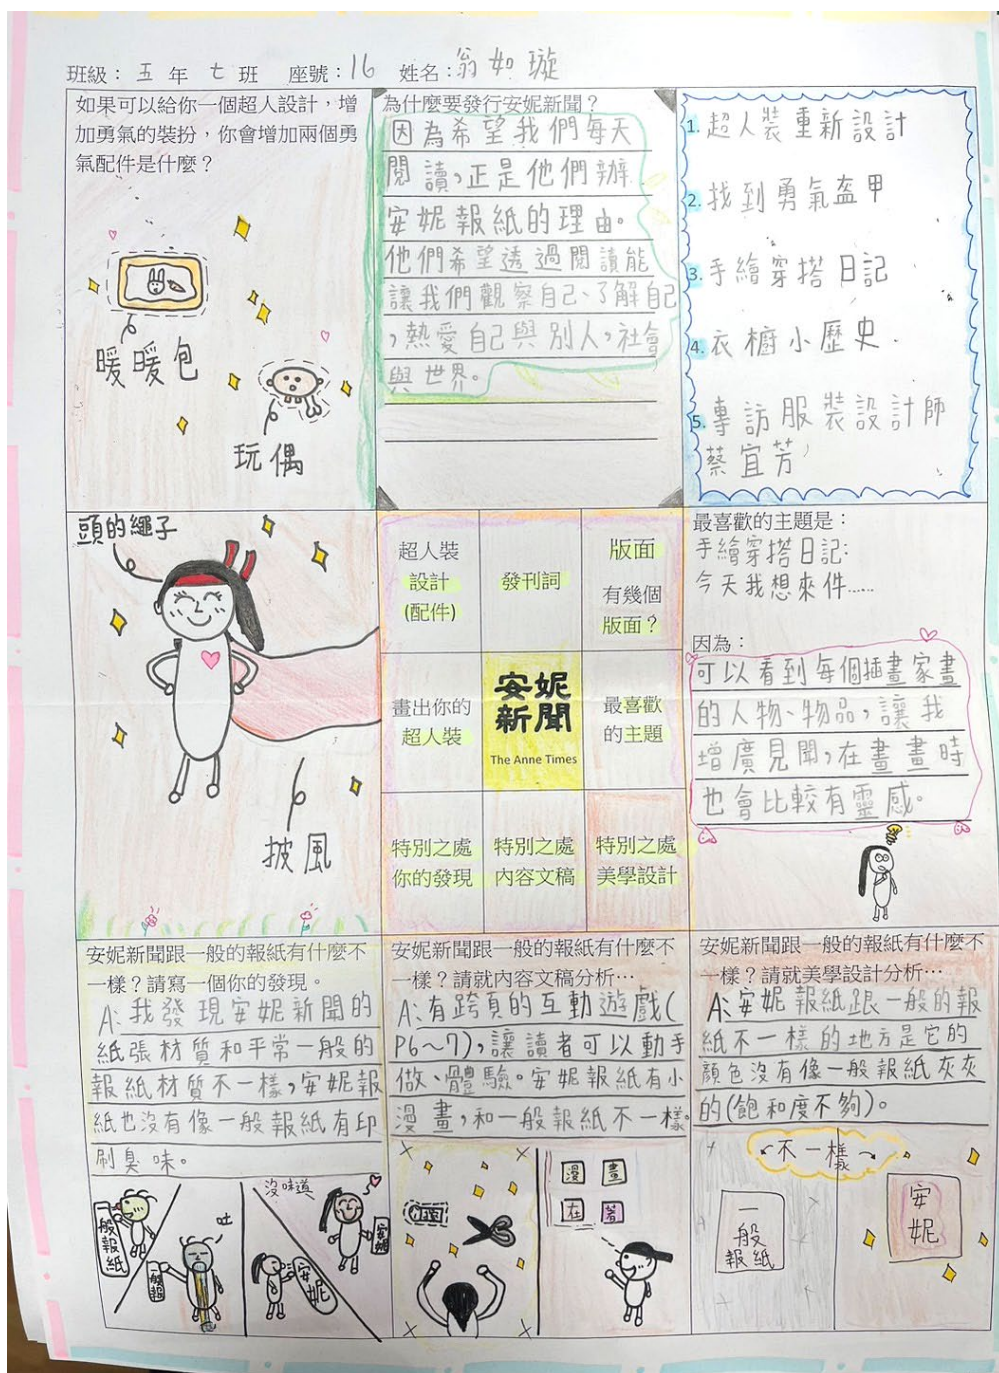 班級：五年七班 座號：16 姓名：翁如璇
如果可以給你一個超人設計，增
加勇氣的裝扮，你會增加兩個勇
氣配件是什麼？
暖暖包
玩偶
為什麼要發行安妮新聞？
因為希望我們每天
閱讀，正是他們辦
安妮報紙的理由。
他們希望透過閱讀能
讓我們觀察自己、了解自己
，熱愛自己與別人，社會
與世界。
1. 超人裝重新設計
2. 找到勇氣盔甲
3. 手繪穿搭日記
4. 衣櫥小歷史
5. 專訪服裝設計師
蔡宜芳
頭的繩子
披風
超人裝
設計
(配件)
發刊詞
版面
有幾個
版面？
畫出你的
超人裝
安妮
新聞
The Anne Times
最喜歡
的主題
特別之處
你的發現
特別之處
內容文稿
特別之處
美學設計
最喜歡的主題是：
手繪穿搭日記：
今天我想來件……
因為：
可以看到每個插畫家畫
的人物、物品，讓我
增廣見聞，在畫畫時
也會比較有靈感。
安妮新聞跟一般的報紙有什麼不
一樣？請寫一個你的發現。
A：我發現安妮新聞的
紙張材質和平常一般的
報紙材質不一樣，安妮報
紙也沒有像一般報紙有印
刷臭味。
一般報紙
吐
一般報
沒味道
安妮
安妮
安妮新聞跟一般的報紙有什麼不
一樣？請就內容文稿分析…
A：有跨頁的互動遊戲(
P6～7)，讓讀者可以動手
做、體驗。安妮報紙有小
漫畫，和一般報紙不一樣。
漫 畫
在 著
安妮新聞跟一般的報紙有什麼不
一樣？請就美學設計分析…
A：安妮報紙跟一般的報
紙不一樣的地方是它的
顏色沒有像一般報紙灰灰
的(飽和度不夠)。
不一樣
一般
報紙
安妮